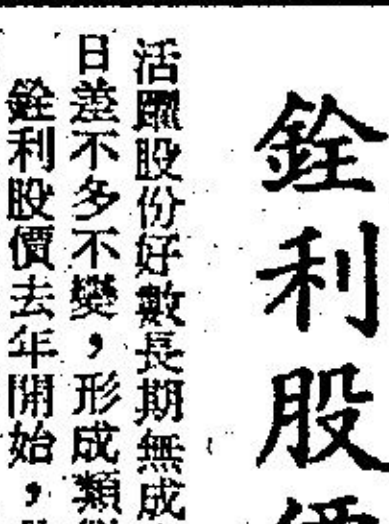 銓利股
活躍股份好數長期無成
日差不多不變，形成類
銓利股價去年開始，